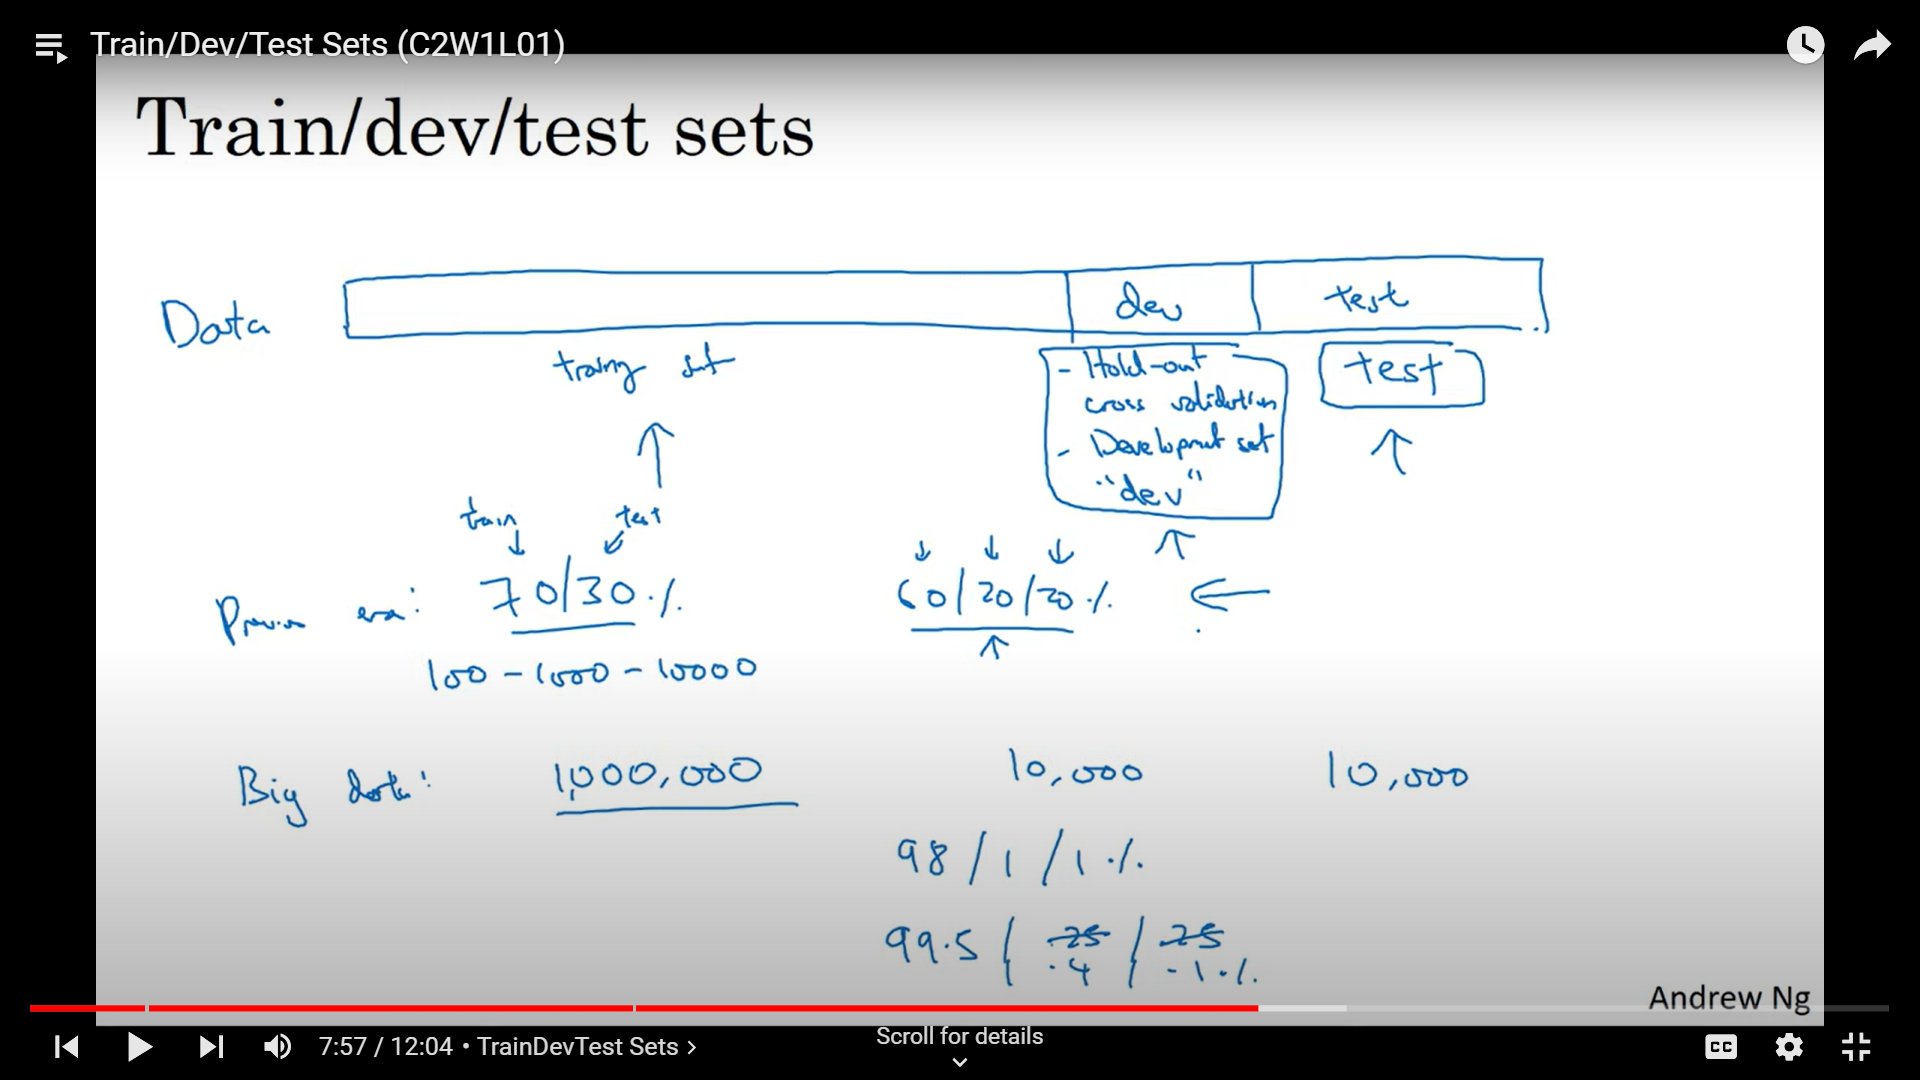 Train/Dev/Test Sets (C2W1L01)
Train/dev/test sets
Data
dev
test
training set
- Hold-out
cross validation
- Development set
"dev"
test
train
test
Previous era:
70/30 %
60/20/20 %
100 - 1000 - 10000
Big data:
1,000,000
10,000
10,000
98 / 1 / 1 %
99.5 / .25 / .25
.4 .1 %
Andrew Ng
7:57 / 12:04 • TrainDevTest Sets >
Scroll for details
CC